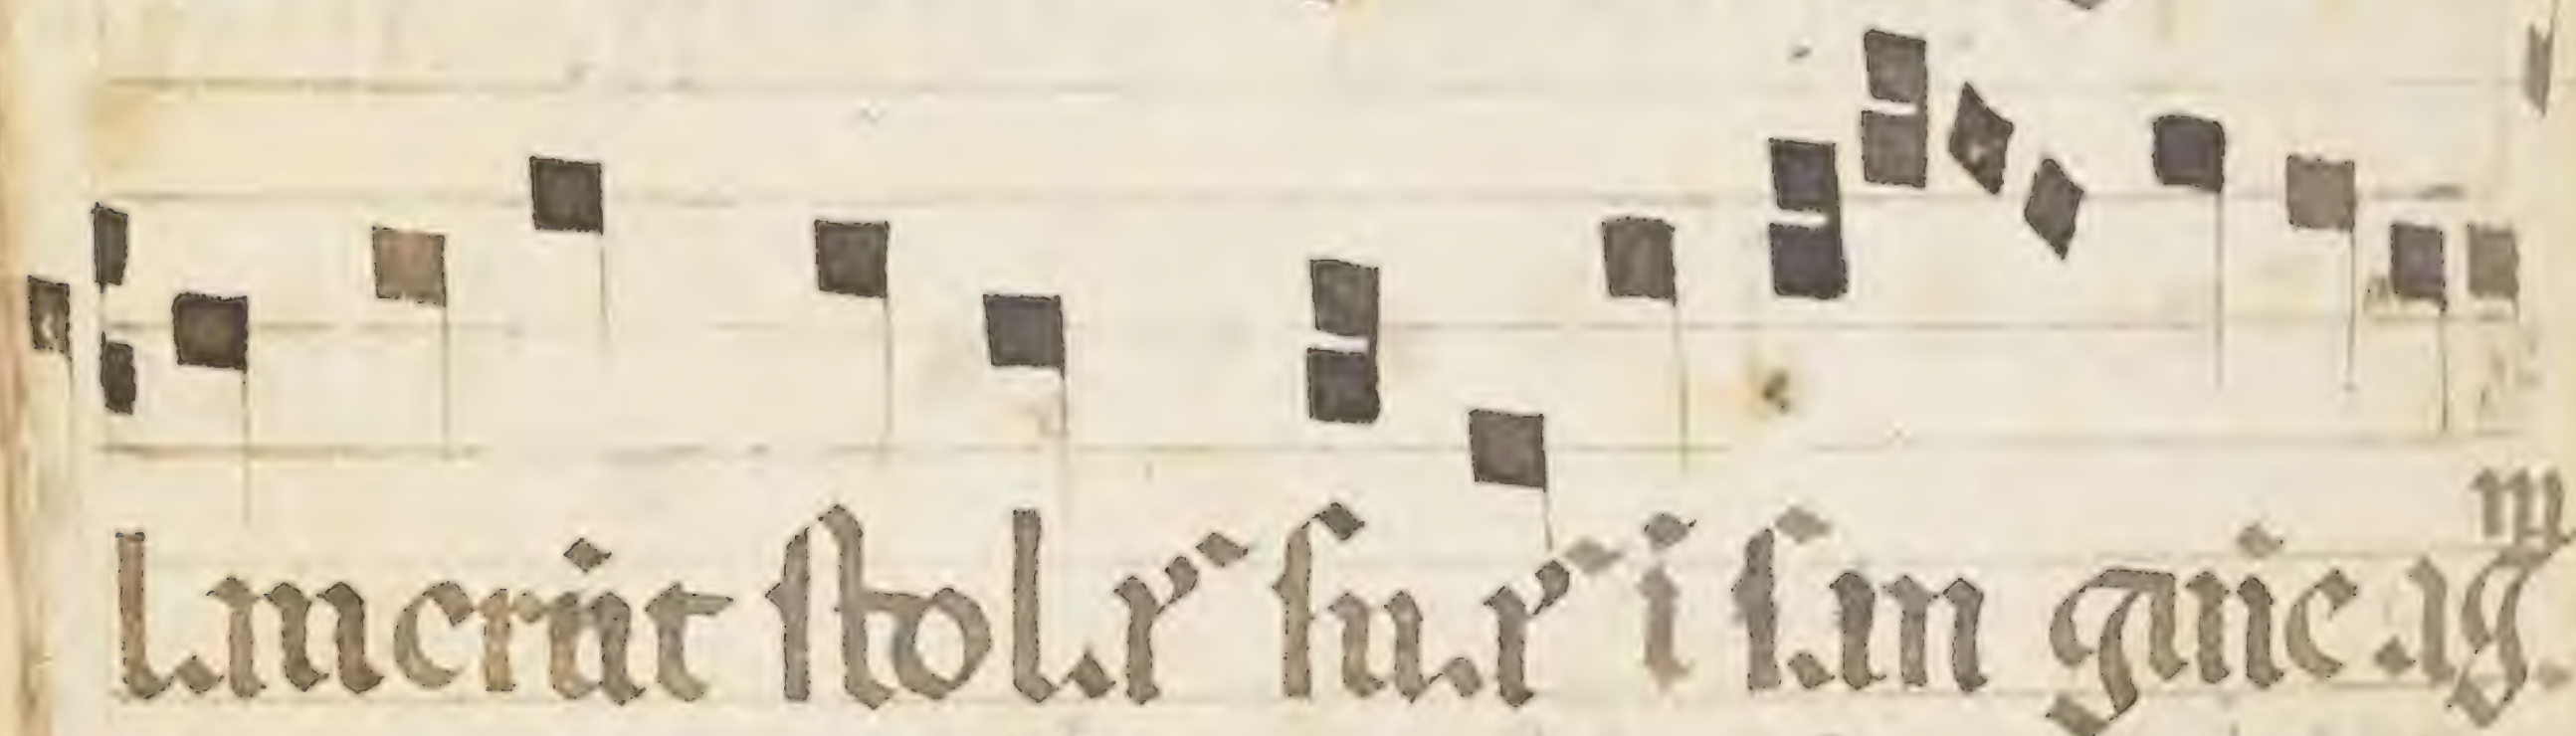 lauerūt stolas suas ī san guīe ag